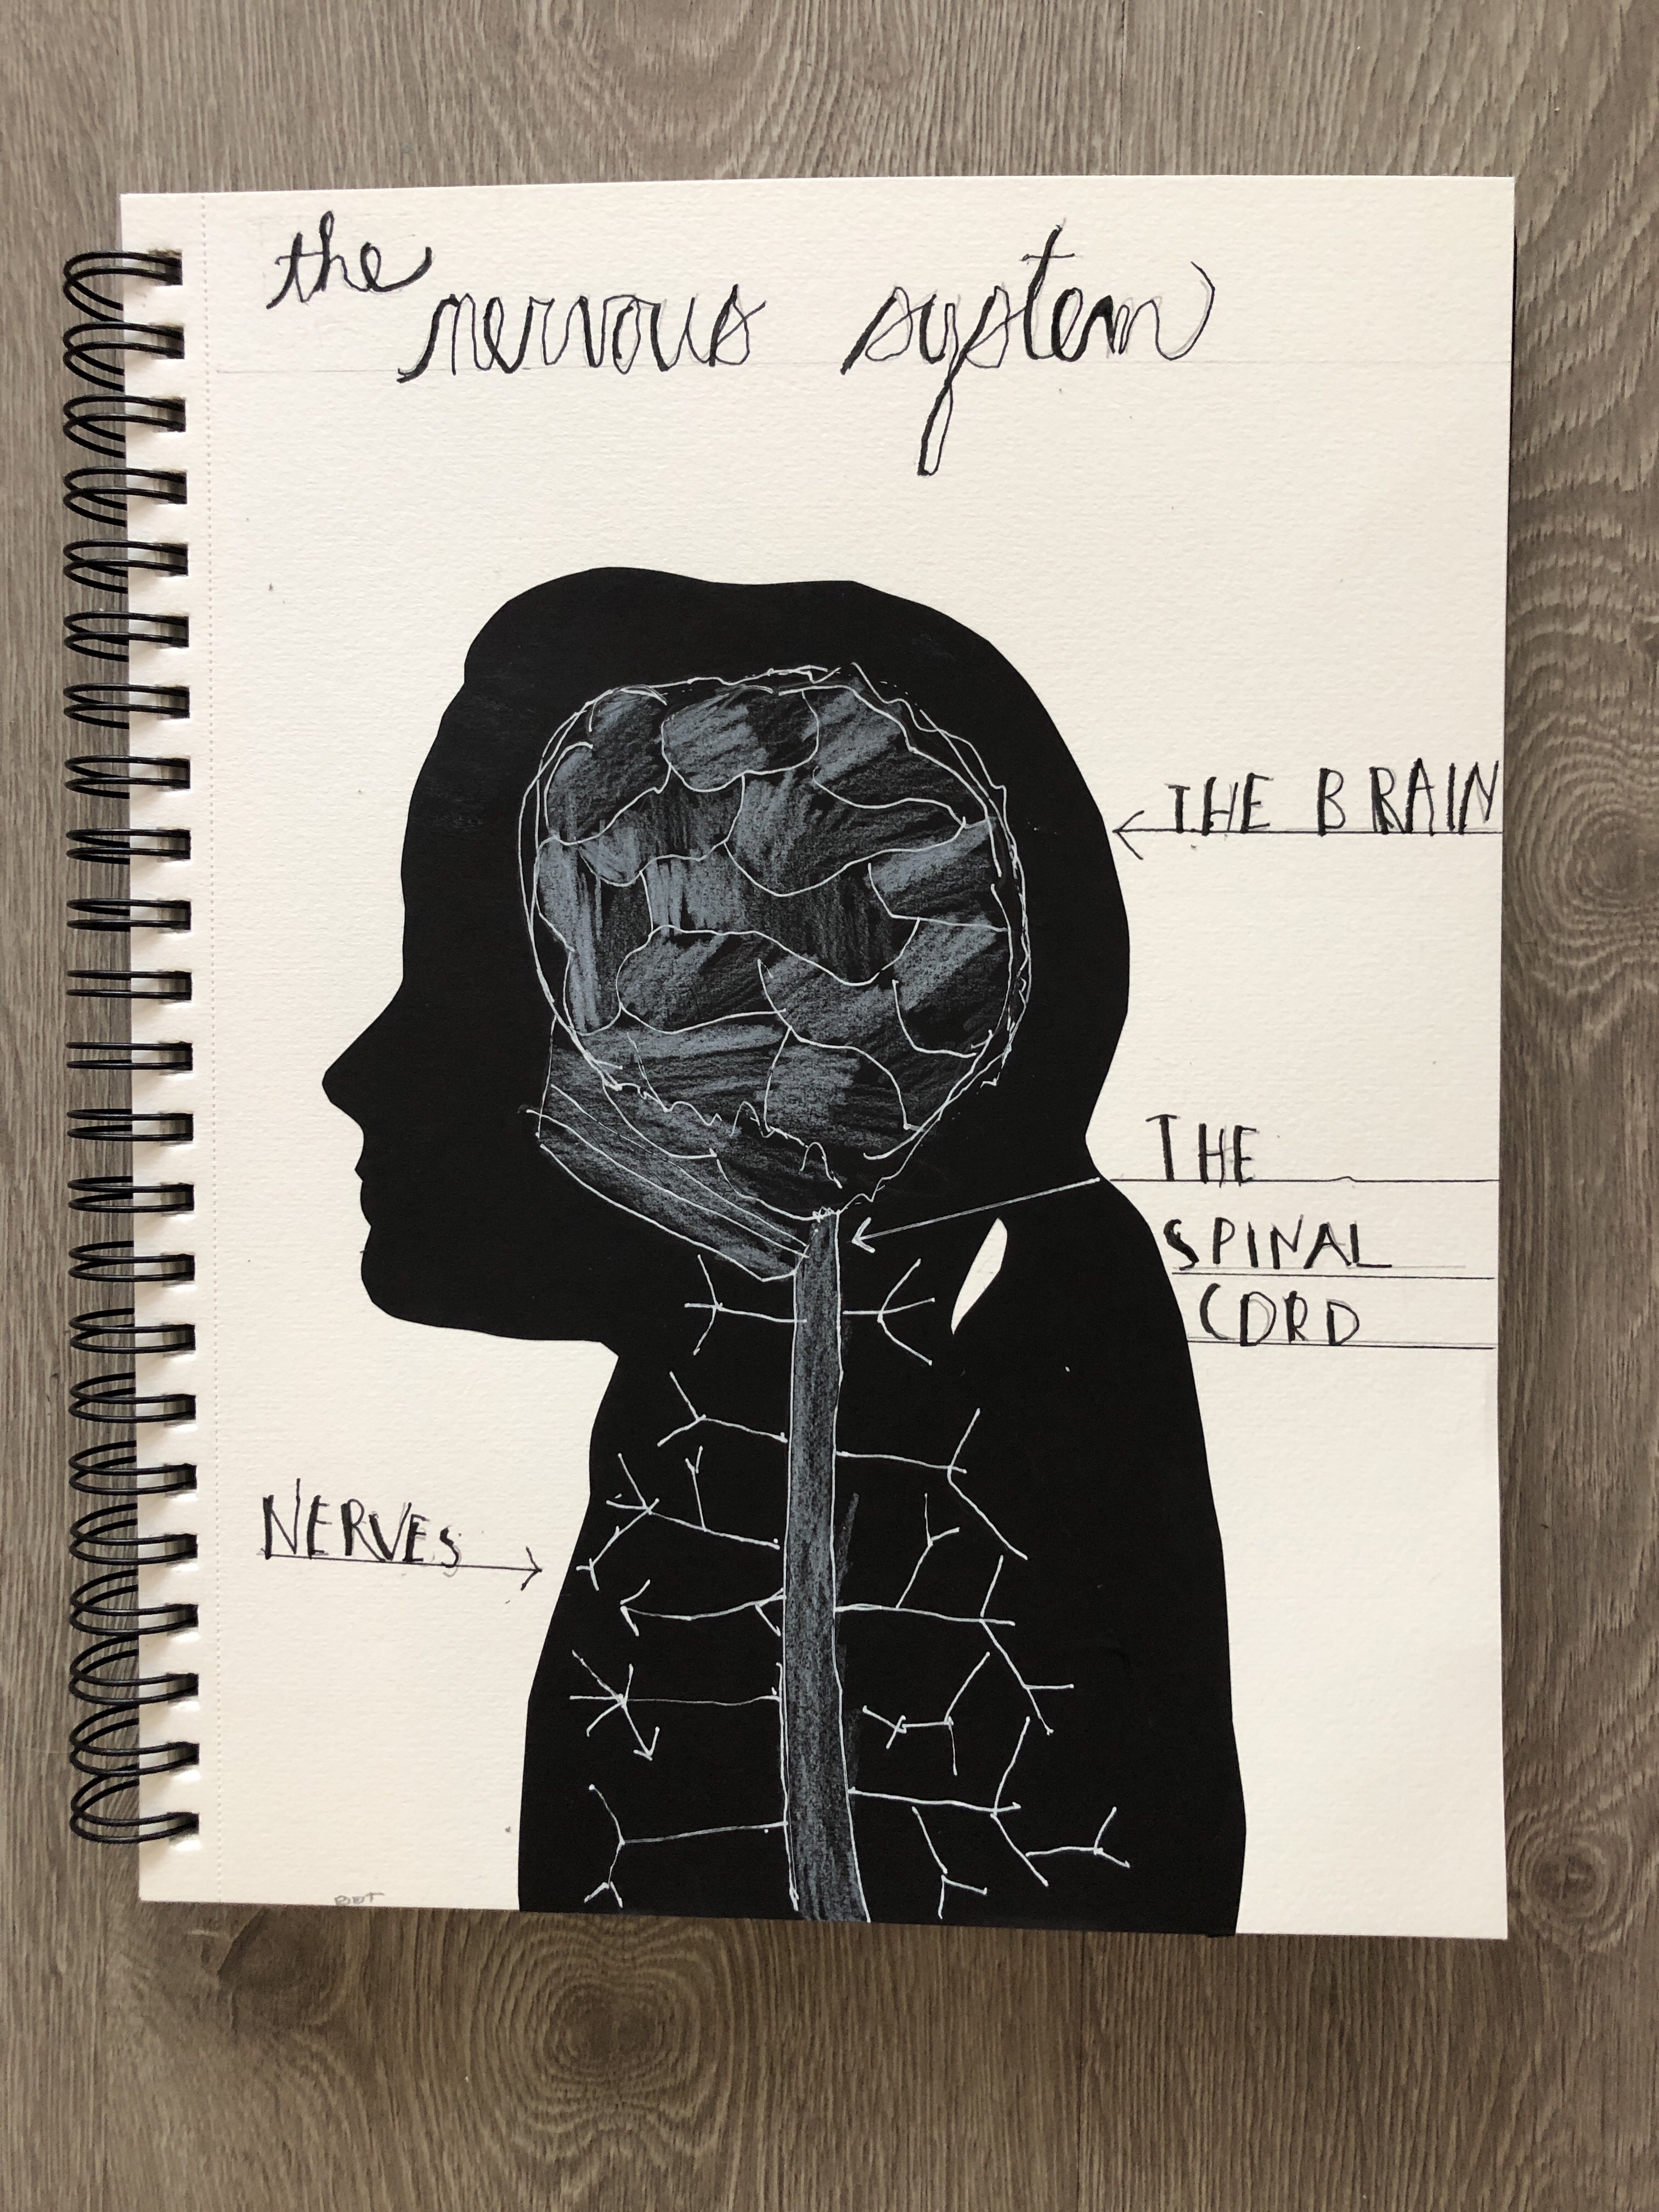 the
nervous system
THE BRAIN
THE
SPINAL
CORD
NERVES